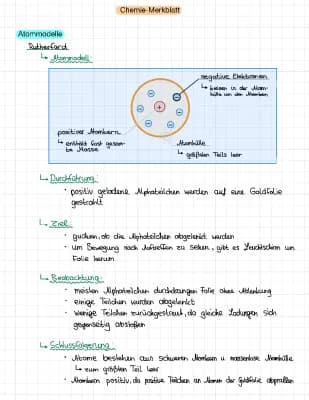 Chemie-Merkblatt
Atommodelle
Rutherford
↳ Atommodell:
negative Elektronen
↳ kreisen in der Atom-
hülle um den Atomkern
positiver Atomkern
↳ enthält fast gesam-
te Masse
Atomhülle
↳ größten Teils leer
↳ Durchführung:
· positiv geladene Alphateilchen werden auf eine Goldfolie
gestrahlt
↳ Ziel:
· gucken, ob die Alphateilchen abgelenkt werden
· um Bewegung nach Auftreffen zu sehen, gibt es Leuchtschirm um
Folie herum
↳ Beobachtung:
· meisten Alphateilchen durchdrangen Folie ohne Ablenkung
· einige Teilchen wurden abgelenkt
· wenige Teilchen zurückgestreut, da gleiche Ladungen sich
gegenseitig abstoßen
↳ Schlussfolgerung:
· Atome bestehen aus schweren Atomkern u. massenlose Atomhülle
↳ zum größten Teil leer
· Atomkern positiv, da positive Teilchen an Atomen der Goldfolie abprallen